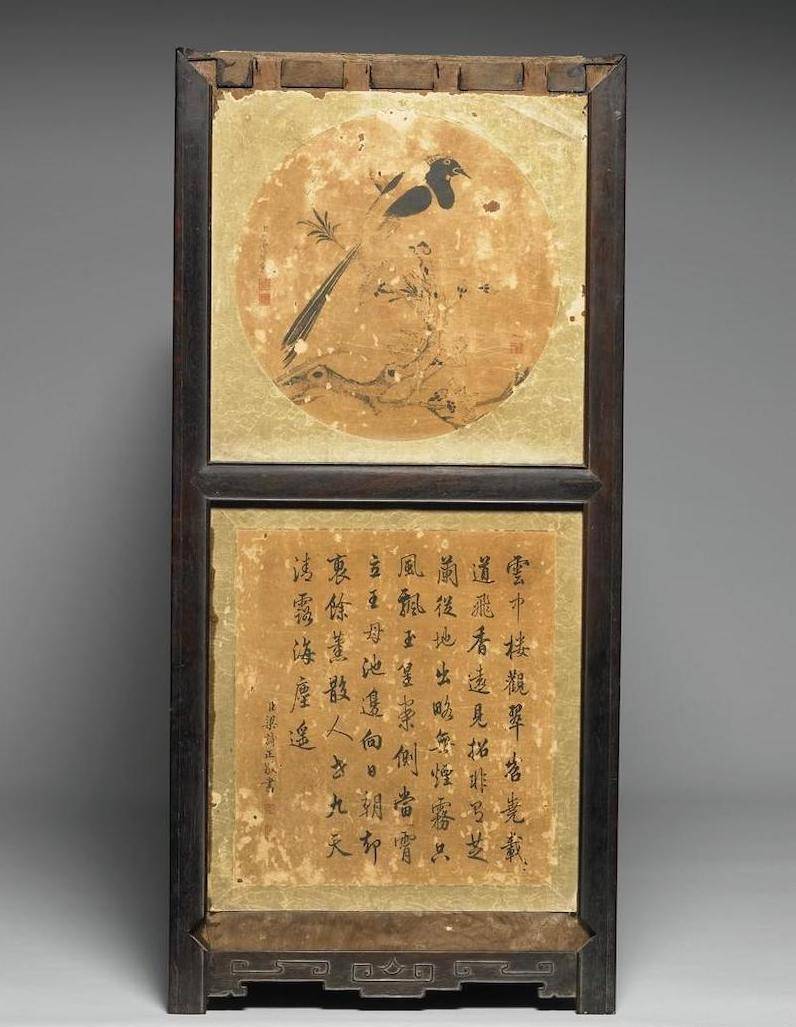 雲中樓觀翠岧嶤載
道飛香遠見招非有芝
蘭從地出略無煙霧只
風飄玉皇案側當霄
立王母池邊向日朝却
裹餘薰散人世九天
清露海塵遥
臣梁詩正敬書